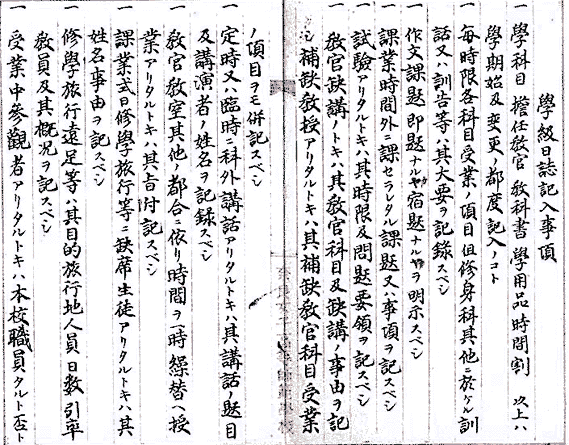 學級日誌記入事項
一 學科目 擔任教官 教科書 學用品 時間割 以上ハ
學期始及變更ノ都度記入ノコト
一 每時限各科目受業ノ項目但修身科其他ニ於ケル訓
話又ハ訓告等ハ其大要ヲ記錄スベシ
作文課題即題ナルヤ宿題ナルヤヲ明示スベシ
一 課業時間外ニ課セラレタル課題又ハ事項ヲ記スベシ
一 試驗アリタルトキハ其時限及問題要領ヲ記スベシ
一 教官缺講ノトキハ其教官科目及缺講ノ事由ヲ記
シ補缺教授アリタルトキハ其補缺教官科目受業
ノ項目ヲモ併記スベシ
一 定時又ハ臨時ニ科外講話アリタルトキハ其講話ノ題目
及講演者ノ姓名ヲ記錄スベシ
一 教官教室其他ノ都合ニ依リ時間ヲ一時繰替ヘ授
業アリタルトキハ其旨付記スベシ
一 課業式日修學旅行等ニ缺席生徒アリタルトキハ其
姓名事由ヲ記スベシ
一 修學旅行遠足等ハ其目的旅行地人員日數引率
教員及其概況ヲ記スベシ
一 受業中參觀者アリタルトキハ本校職員タルト否ト